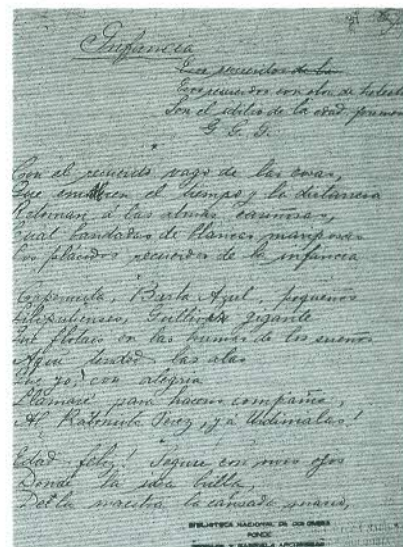 Infancia
Esos recuerdos de la
Esos recuerdos con olor de helecho
Son el idilio de la edad primera
G. G. G.
Con el recuerdo vago de las cosas,
Que embellecen el tiempo y la distancia
Retornan á las almas cariñosas,
Cual bandadas de blancas mariposas
Los plácidos recuerdos de la infancia
Caperucita, Barba Azul, pequeños
Liliputienses, Gulliver gigante
Que flotais en las brumas de los sueños
Aquí tended las alas
Que yo, con alegría
Llamaré para haceros compañía,
Al Ratoncito Pérez, y á Urdimalas!
Edad feliz! Seguir con vivos ojos
Donde la idea brilla,
De la maestra la cansada mano,
BIBLIOTECA NACIONAL DE COLOMBIA
FONDO